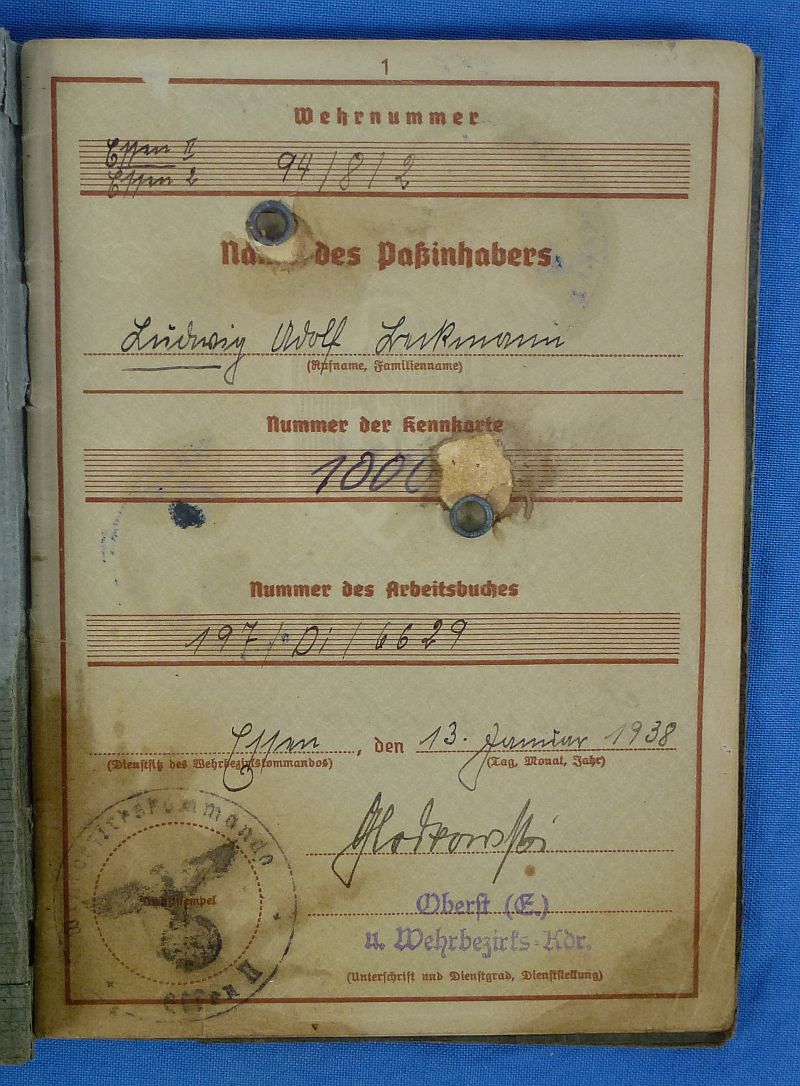 1
Wehrnummer
Essen II 94/8/2
Essen 2
des Paßinhabers
Ludwig Adolf Beckmann
(Rufname, Familienname)
Nummer der Kennkarte
100
Nummer des Arbeitsbuches
197/Di/6629
Essen, den 13. Januar 1938
(Dienstsitz des Wehrbezirkskommandos) (Tag, Monat, Jahr)
Glodkowski
Oberst (E.)
u. Wehrbezirks-Kdr.
(Unterschrift und Dienstgrad, Dienststellung)
Wehrbezirkskommando
Dienststempel
Essen II